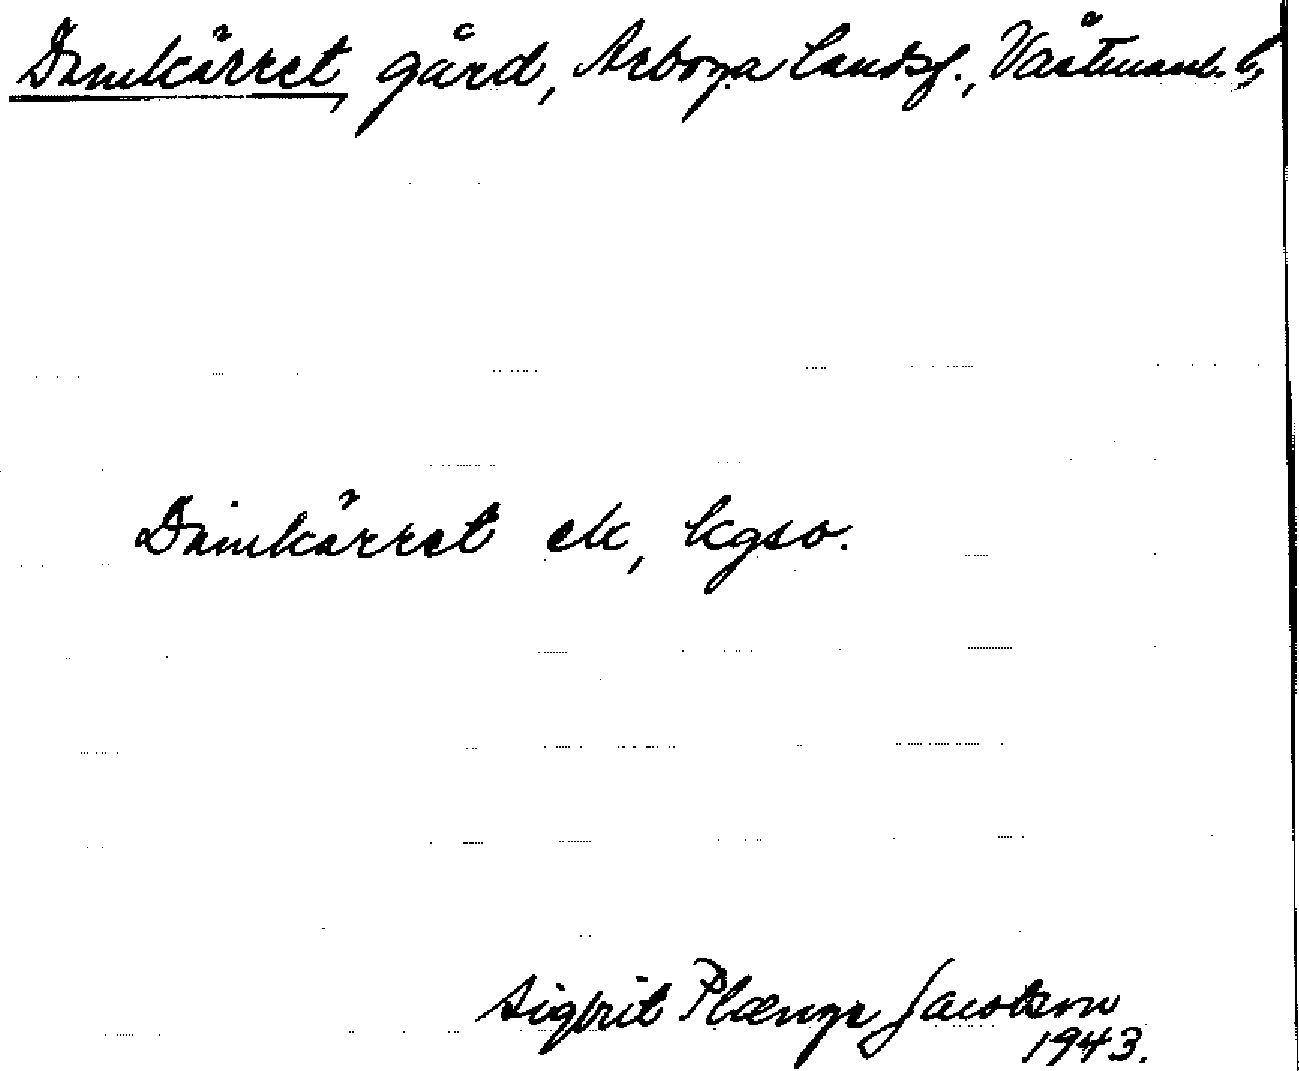 Damkärret, gård, Arboga landsf., Västmanl. l,
Damkärret ek, kgso.
Sigbrit Plænge Jacobson
1943.